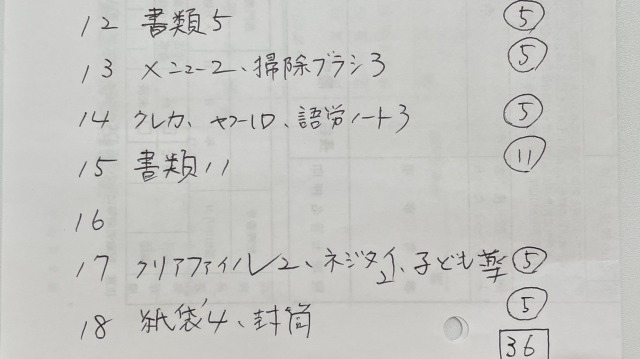 12 書類5 ⑤
13 メニュー2、掃除ブラシ3 ⑤
14 クレカ、ヤフーID、語学ノート3 ⑤
15 書類11 ⑪
16
17 クリアファイル2、ネジ 2、子ども薬 ⑤
18 紙袋4、封筒 ⑤
36